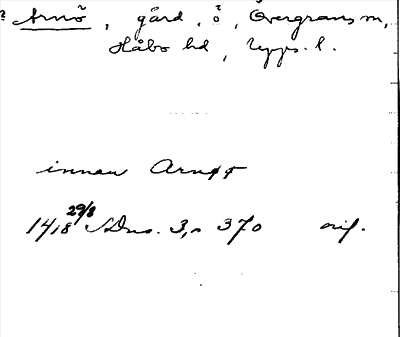 ? Arnö, gård, ö, Övergrans sn,
Håbo hd, Upps. l.
innan Arnøø
1418 29/8 SDns. 3, s 370 orig.